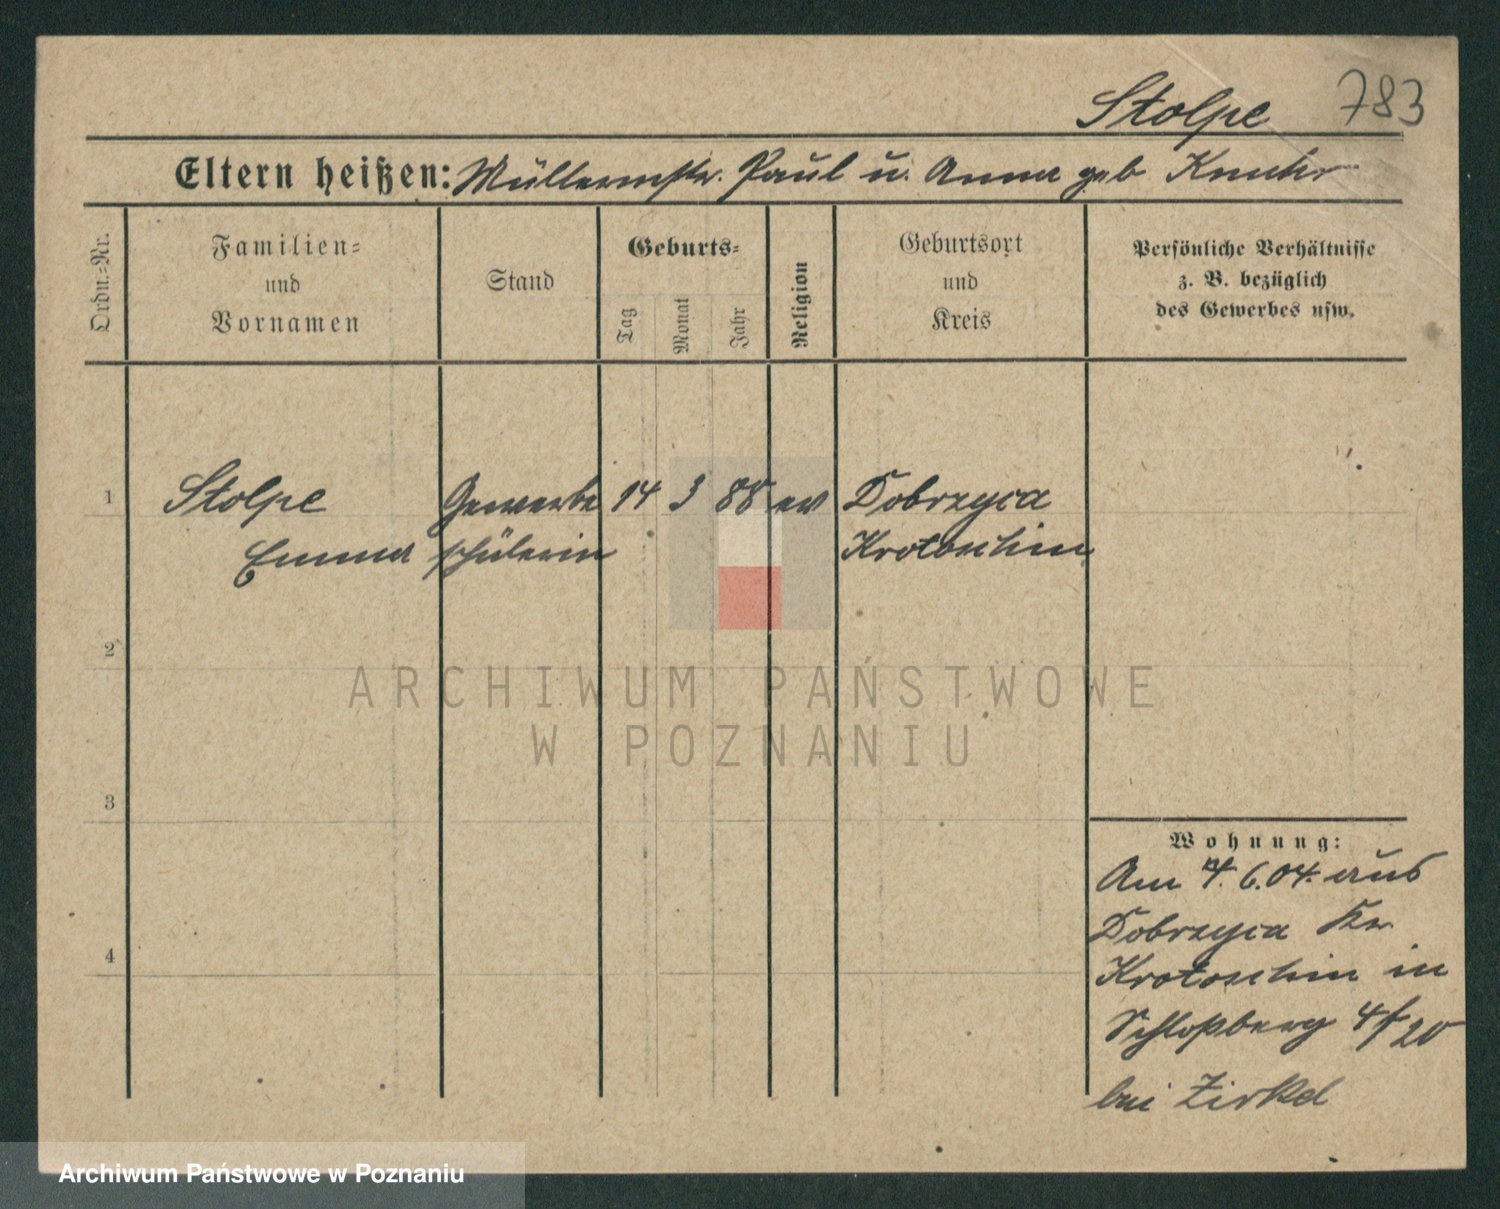 Stolpe 783
Eltern heißen: Müllermstr. Paul u. Anna geb
Ordn.=Nr.
Familien=
und
Vornamen
Stand
Geburts=
Tag
Monat
Jahr
Religion
Geburtsort
und
Kreis
Persönliche Verhältnisse
z. B. bezüglich
des Gewerbes usw.
1 Stolpe Gewerbe 14 3 88 ev Dobrzyca
Emma schülerin Krotoschin
2
3
4
Wohnung:
Am 6.04. aus
Dobrzyca Kr.
Krotoschin in
Schloßberg 4/20
bei Zirkel
ARCHIWUM PAŃSTWOWE
W POZNANIU
Archiwum Państwowe w Poznaniu